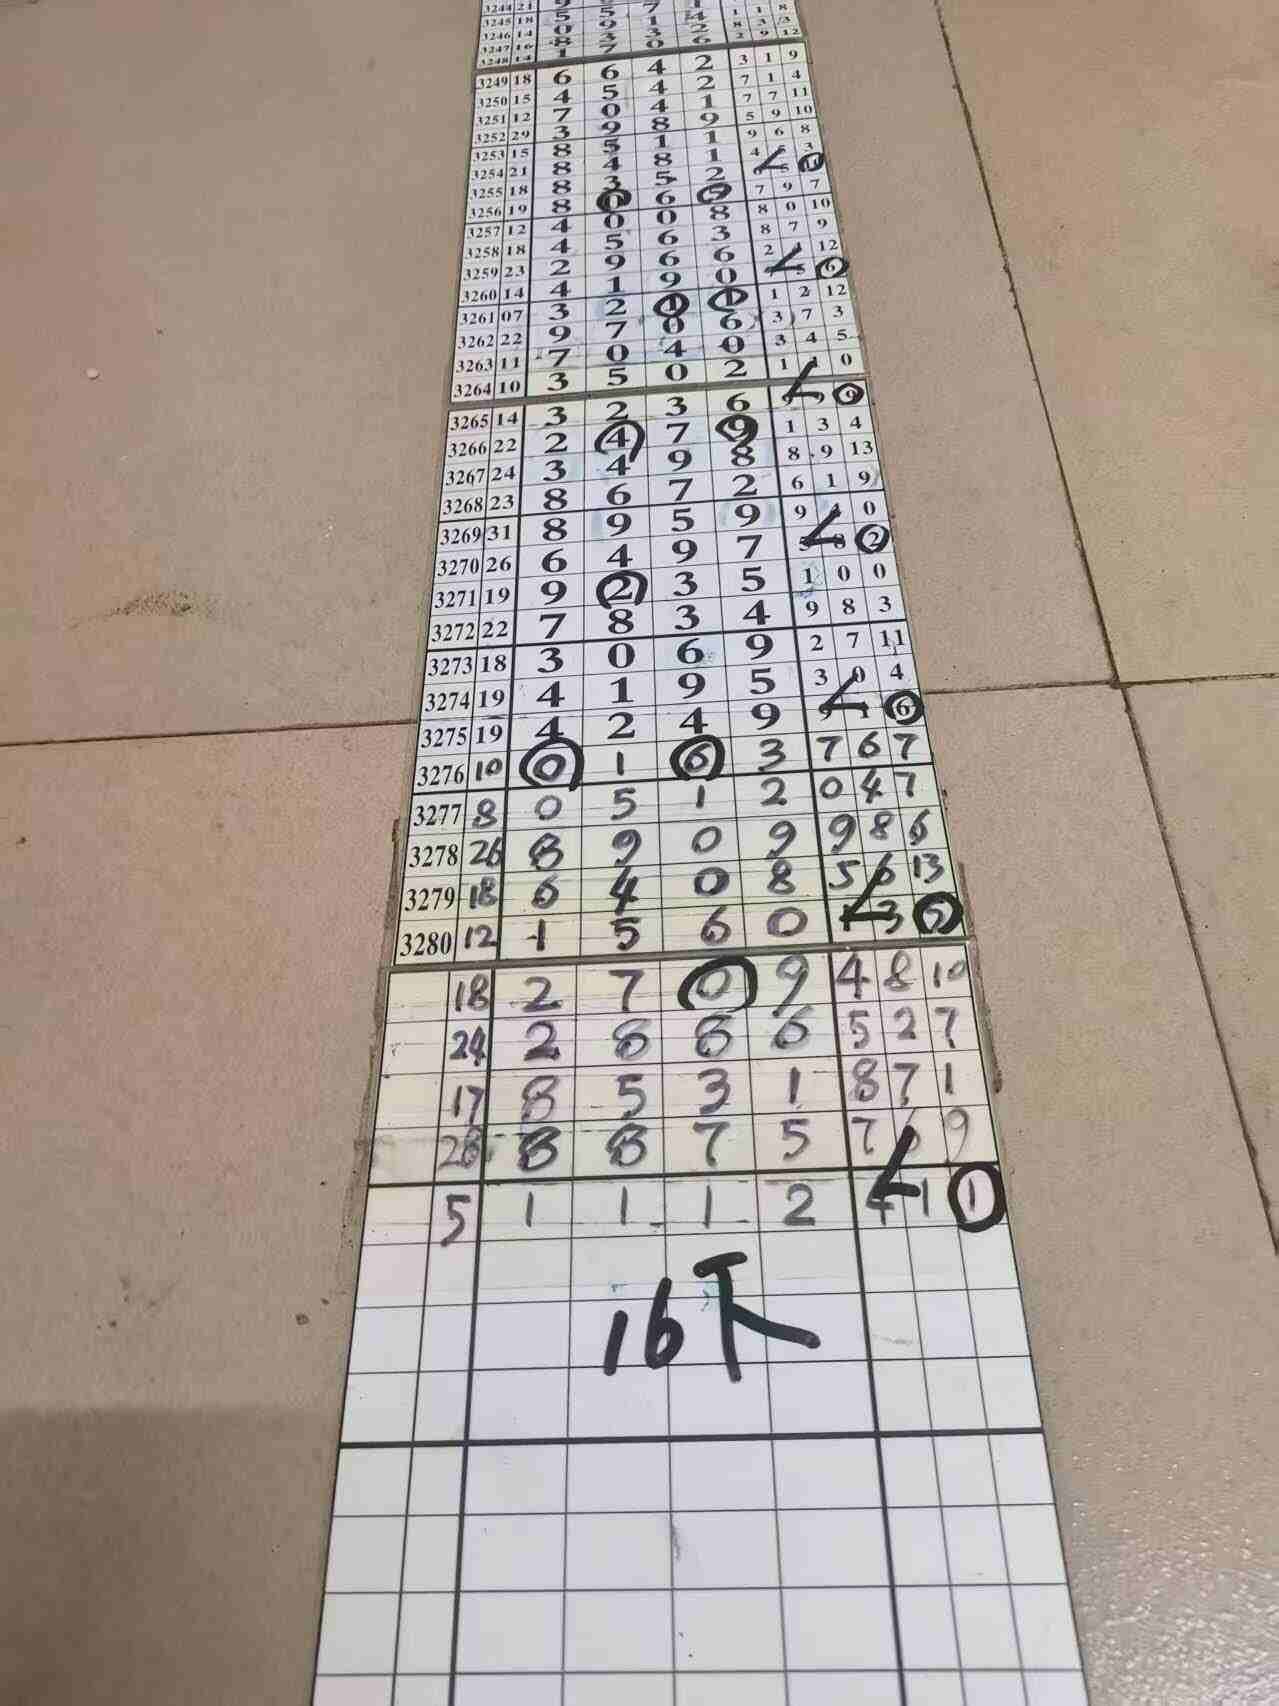 3244 21
3245 18
3246 14
3247 16
3248 14 1 7 0 6 2 9 12
3249 18 6 6 4 2 3 1 9
3250 15 4 5 4 2 7 1 4
3251 12 7 0 4 1 7 7 11
3252 29 3 9 8 9 5 9 10
3253 15 8 5 1 1 9 6 8
3254 21 8 4 8 1 4 5 3
3255 18 8 3 5 2 5
3256 19 8 0 6 5 7 9 7
3257 12 4 0 0 8 8 0 10
3258 18 4 5 6 3 8 7 9
3259 23 2 9 6 6 2 12
3260 14 4 1 9 0 5 6
3261 07 3 2 1 1 1 2 12
3262 22 9 7 0 6 3 7 3
3263 11 7 0 4 0 3 4 5
3264 10 3 5 0 2 1 0
3265 14 3 2 3 6 9
3266 22 2 4 7 9 1 3 4
3267 24 3 4 9 8 8 9 13
3268 23 8 6 7 2 6 1 9
3269 31 8 9 5 9 9 0
3270 26 6 4 9 7 8 2
3271 19 9 2 3 5 1 0 0
3272 22 7 8 3 4 9 8 3
3273 18 3 0 6 9 2 7 11
3274 19 4 1 9 5 3 0 4
3275 19 4 2 4 9 9 1 6
3276 10 0 1 6 3 7 6 7
3277 8 0 5 1 2 0 4 7
3278 26 8 9 0 9 9 8 6
3279 18 6 4 0 8 5 6 13
3280 12 1 5 6 0 3 5
18 2 7 0 9 4 8 10
24 2 8 8 6 5 2 7
17 8 5 3 1 8 7 1
28 8 8 7 5 7 6 9
5 1 1 1 2 4 1 1
16下